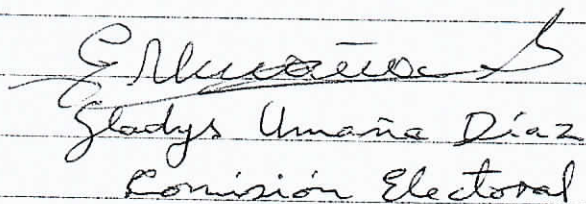 Gladys Umaña Díaz
Comisión Electoral